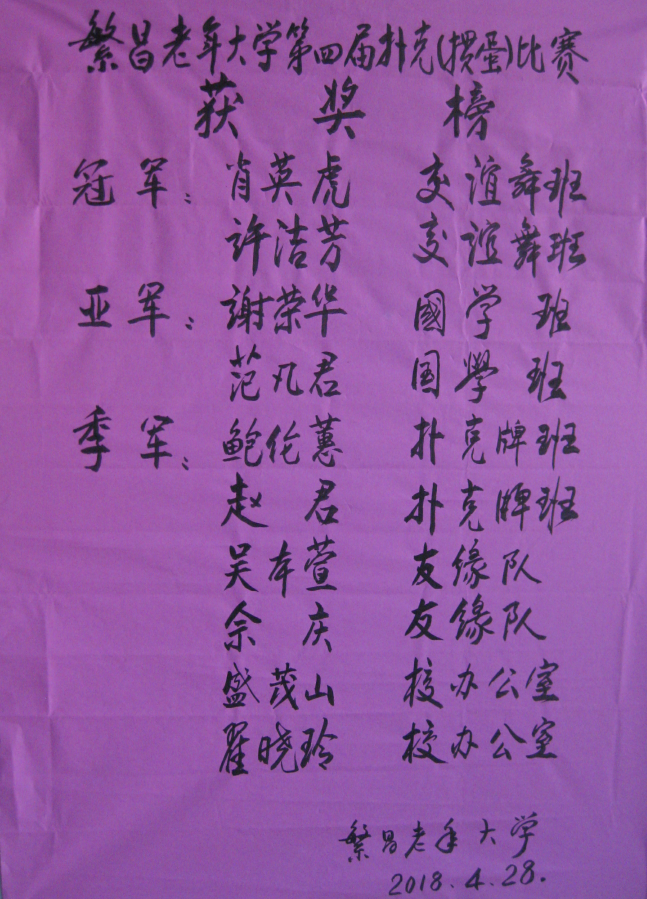 繁昌老年大学第四届扑克(掼蛋)比赛
获奖榜
冠军: 肖英虎 交谊舞班
许洁芳 交谊舞班
亚军: 谢荣华 國学班
范凡君 国學班
季军: 鲍伦蕙 扑克牌班
赵君 扑克牌班
吴本萱 友缘队
佘庆 友缘队
盛茂山 校办公室
翟晓玲 校办公室
繁昌老年大学
2018.4.28.